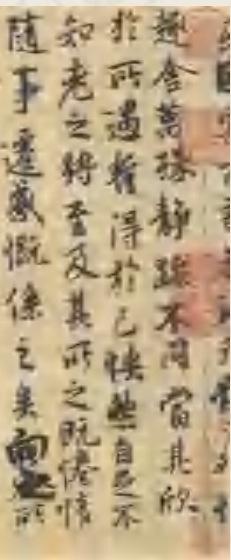 趣舍萬殊靜躁不同當其欣
於所遇暫得於己怏然自足不
知老之將至及其所之既惓情
隨事遷感慨係之矣向之所